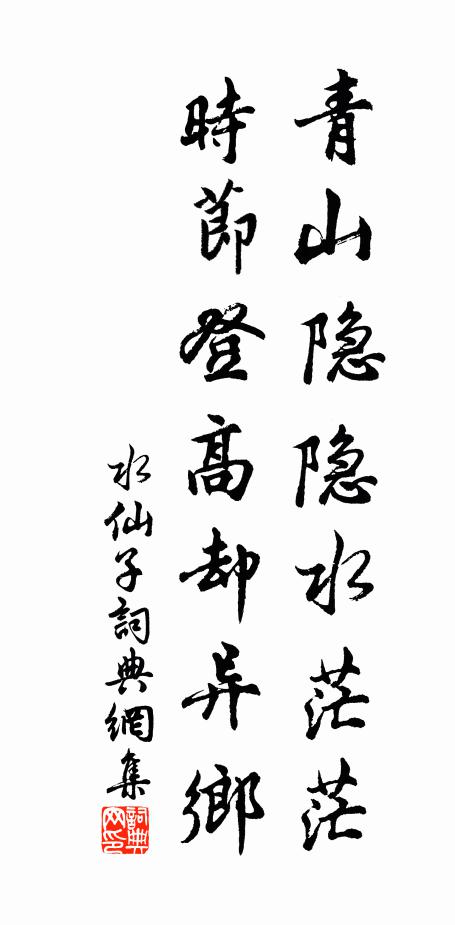 青山隐隐水茫茫
時節登高却异鄉
水仙子詞典網集
詞典網印